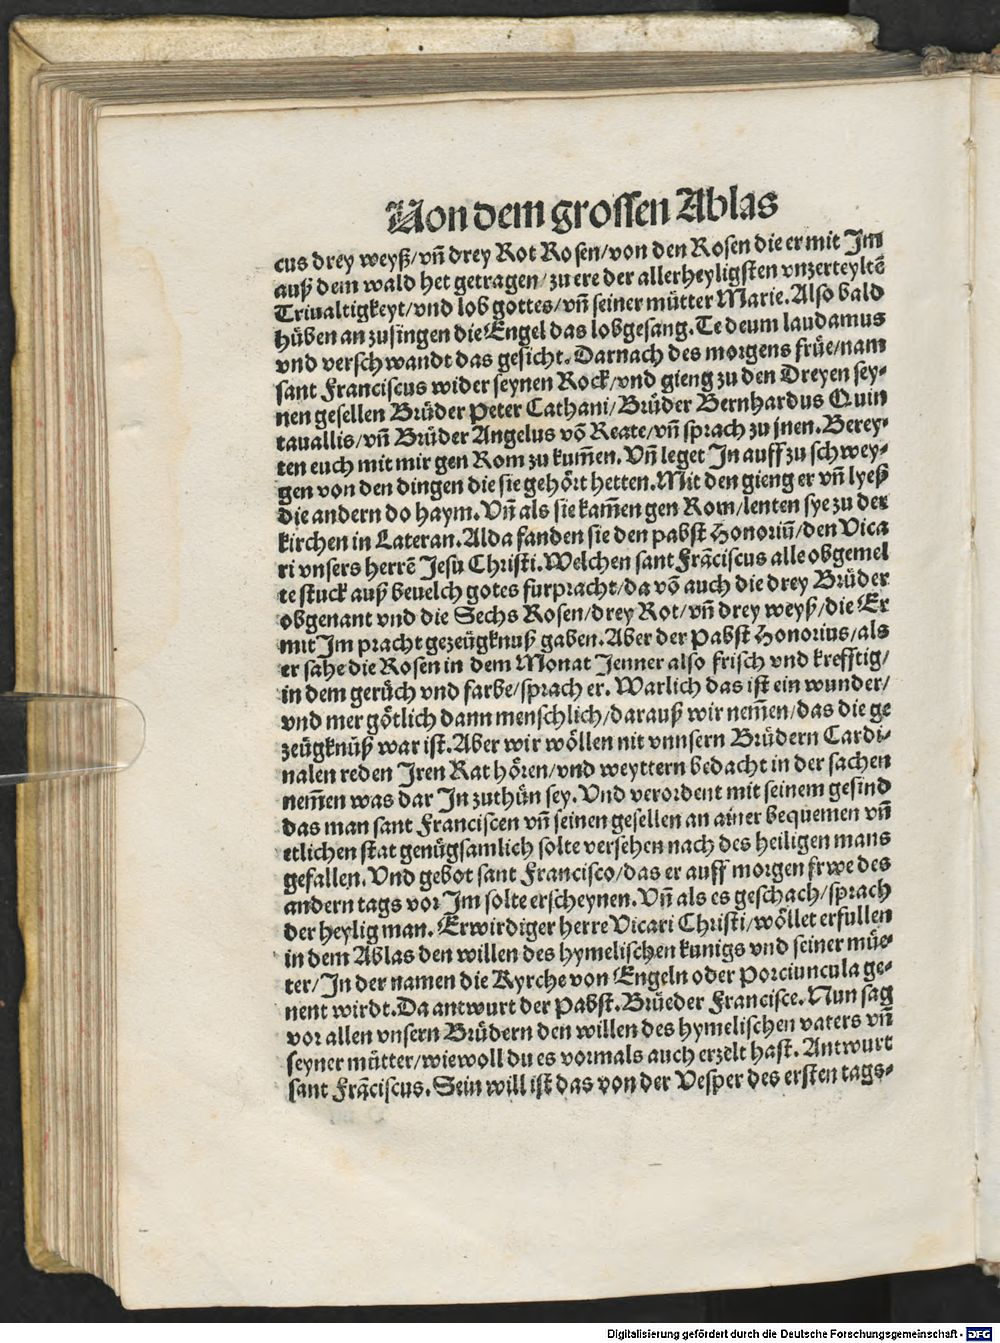 Von dem grossen Ablas
cus drey weyß/vñ drey Rot Rosen/von den Rosen die er mit Im
auß dem wald het getragen/zu ere der allerheyligsten vnzerteyltē
Triualtigkeyt/vnd lob gottes/vñ seiner mütter Marie. Also bald
hüben an zusingen die Engel das lobgesang. Te deum laudamus
vnd verschwandt das gesicht. Darnach des morgens früe/nam
sant Franciscus wider seynen Rock/vnd gieng zu den Dreyen sey-
nen gesellen Brüder Peter Cathani/Brüder Bernhardus Quin
tauallis/vñ Brüder Angelus vō Reate/vñ sprach zu jnen. Berey-
ten euch mit mir gen Rom zu kum̄en. Vñ leget In auff zu schwey-
gen von den dingen die sie gehört hetten. Mit den gieng er vñ lyeß
die andern do haym. Vñ als sie kam̄en gen Rom/lenten sye zu der
kirchen in Lateran. Alda fanden sie den pabst Honoriū/den Vica
ri vnsers herrē Jesu Christi. Welchen sant Frāciscus alle obgemel
te stuck auß beuelch gotes furpracht/da vō auch die drey Brüder
obgenant vnd die Sechs Rosen/drey Rot/vñ drey weyß/die Er
mit Im pracht gezeügknuß gaben. Aber der Pabst Honorius/als
er sahe die Rosen in dem Monat Jenner also frisch vnd krefftig/
in dem gerüch vnd farbe/sprach er. Warlich das ist ein wunder/
vnd mer götlich dann menschlich/darauß wir nem̄en/das die ge
zeügknüß war ist. Aber wir wöllen nit vnnsern Brüdern Cardi-
nalen reden Iren Rat hören/vnd weyttern bedacht in der sachen
nem̄en was dar In zuthün sey. Vnd verordent mit seinem gesind
das man sant Franciscen vñ seinen gesellen an ainer bequemen vñ
etlichen stat genügsamlich solte versehen nach des heiligen mans
gefallen. Vnd gebot sant Francisco/das er auff morgen frwe des
andern tags vor Im solte erscheynen. Vñ als es geschach/sprach
der heylig man. Erwirdiger herre Vicari Christi/wöllet erfullen
in dem Ablas den willen des hymelischen kunigs vnd seiner müe-
ter/In der namen die Kyrche von Engeln oder Porciuncula ge-
nent wirdt. Da antwurt der Pabst. Brüeder Francisce. Nun sag
vor allen vnsern Brüdern den willen des hymelischen vaters vñ
seyner mütter/wiewoll du es vormals auch erzelt hast. Antwurt
sant Frāciscus. Sein will ist das von der Vesper des ersten tags-
Digitalisierung gefördert durch die Deutsche Forschungsgemeinschaft - DFG